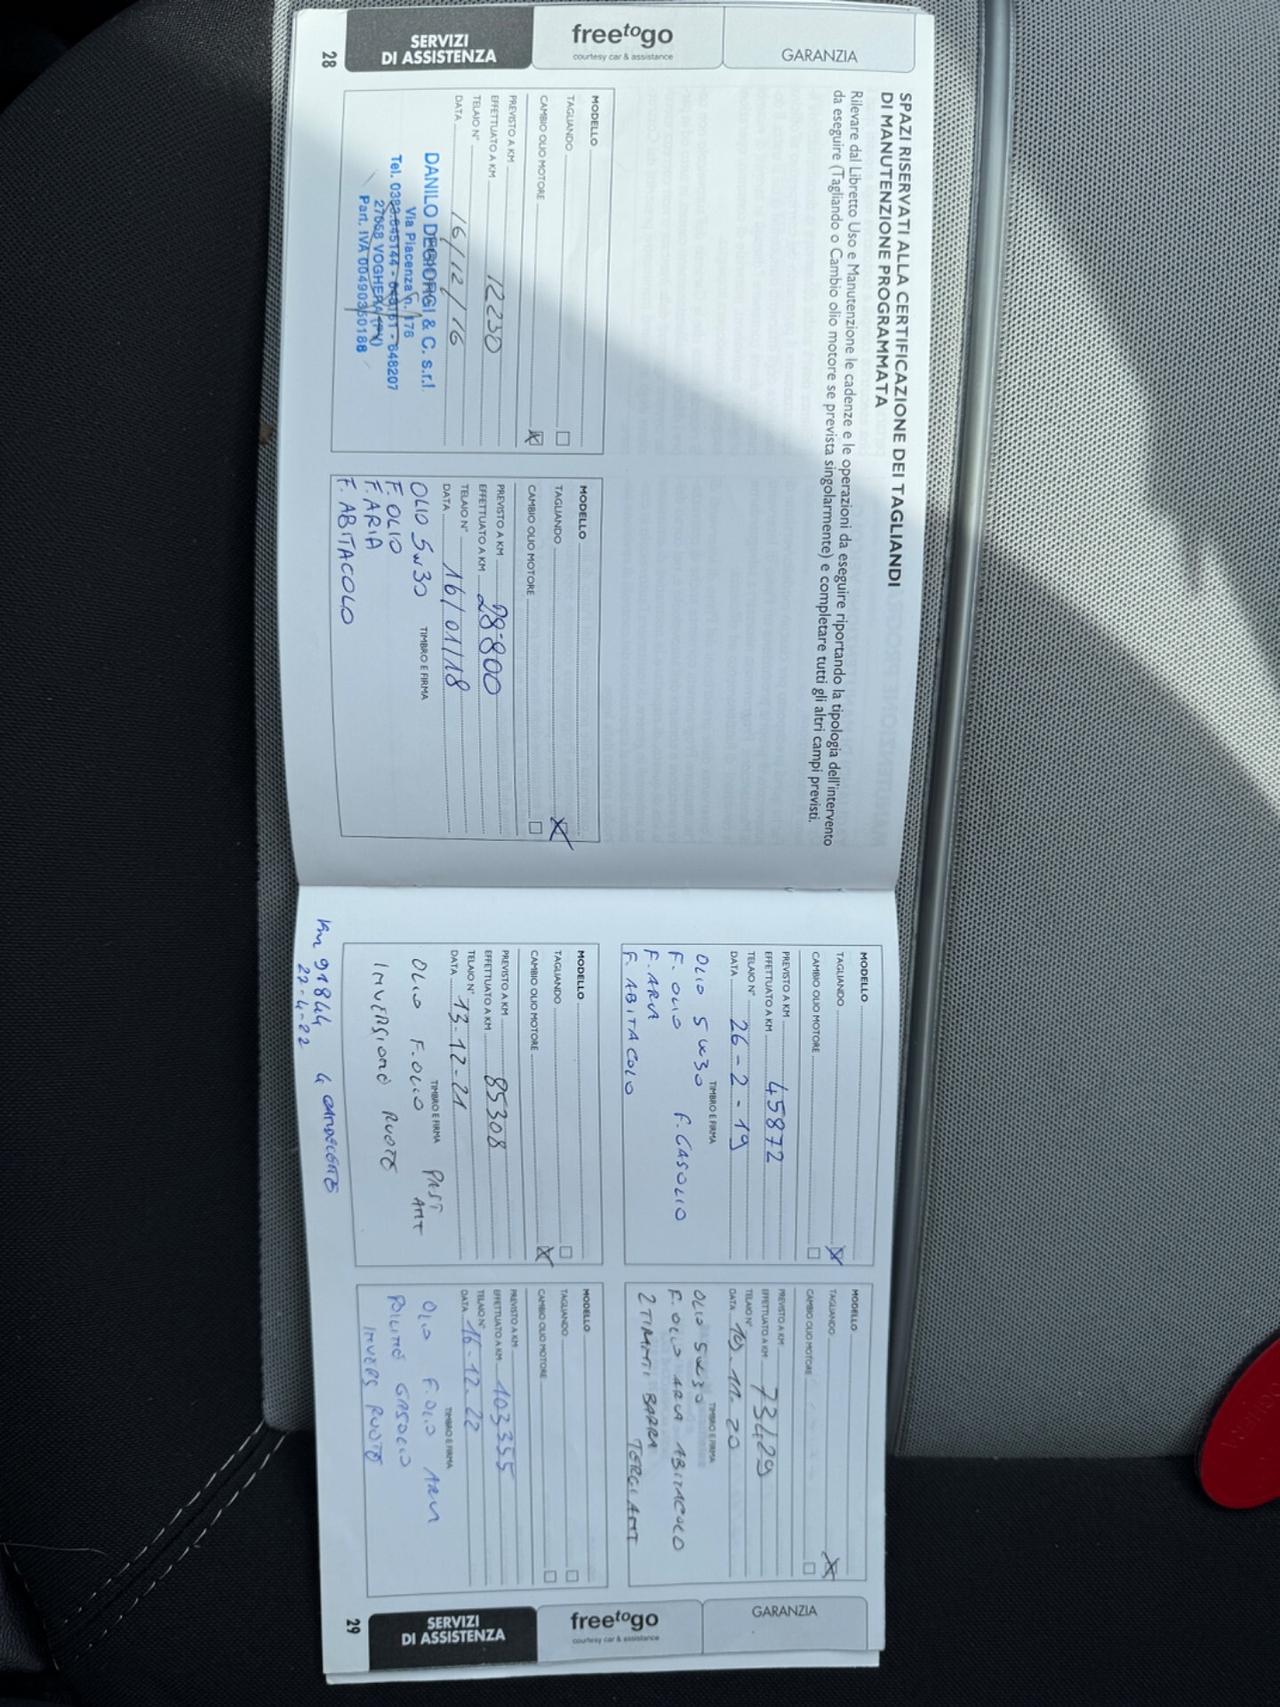 GARANZIA
freetogo
courtesy car & assistance
SERVIZI
DI ASSISTENZA
28
SPAZI RISERVATI ALLA CERTIFICAZIONE DEI TAGLIANDI
DI MANUTENZIONE PROGRAMMATA
Rilevare dal Libretto Uso e Manutenzione le cadenze e le operazioni da eseguire riportando la tipologia dell'intervento
da eseguire (Tagliando o Cambio olio motore se prevista singolarmente) e completare tutti gli altri campi previsti.
MODELLO
TAGLIANDO
CAMBIO OLIO MOTORE
PREVISTO A KM
EFFETTUATO A KM 12230
TELAIO N°
DATA 16/12/16
DANILO DEGIORGI & C. s.r.l.
Via Piacenza n. 176
Tel. 0383.645144 - 648207
27058 VOGHERA (PV)
Part. IVA 00490350188
MODELLO
TAGLIANDO
CAMBIO OLIO MOTORE
PREVISTO A KM
EFFETTUATO A KM 28800
TELAIO N°
DATA 16/01/18
TIMBRO E FIRMA
OLIO 5W30
F. OLIO
F. ARIA
F. ABITACOLO
MODELLO
TAGLIANDO
CAMBIO OLIO MOTORE
PREVISTO A KM
EFFETTUATO A KM 45872
TELAIO N°
DATA 26-2-19
TIMBRO E FIRMA
OLIO 5W30 F. GASOLIO
F. OLIO
F. ARIA
F. ABITACOLO
MODELLO
TAGLIANDO
CAMBIO OLIO MOTORE
PREVISTO A KM
EFFETTUATO A KM 73429
TELAIO N°
DATA 10.11.20
TIMBRO E FIRMA
OLIO 5W30
F. OLIO ARIA ABITACOLO
2 TIRANTI BARRA
TERGI ANT
MODELLO
TAGLIANDO
CAMBIO OLIO MOTORE
PREVISTO A KM
EFFETTUATO A KM 85308
TELAIO N°
DATA 13.12.21
TIMBRO E FIRMA
OLIO F. OLIO PAST
ANT
INVERSIONE RUOTE
Km 91844 4 CANDELETTE
27-4-22
MODELLO
TAGLIANDO
CAMBIO OLIO MOTORE
PREVISTO A KM
EFFETTUATO A KM 103355
TELAIO N°
DATA 16-12-22
TIMBRO E FIRMA
OLIO F. OLIO ARIA
GASOLIO
INVERS RUOTE
GARANZIA
freetogo
courtesy car & assistance
SERVIZI
DI ASSISTENZA
29